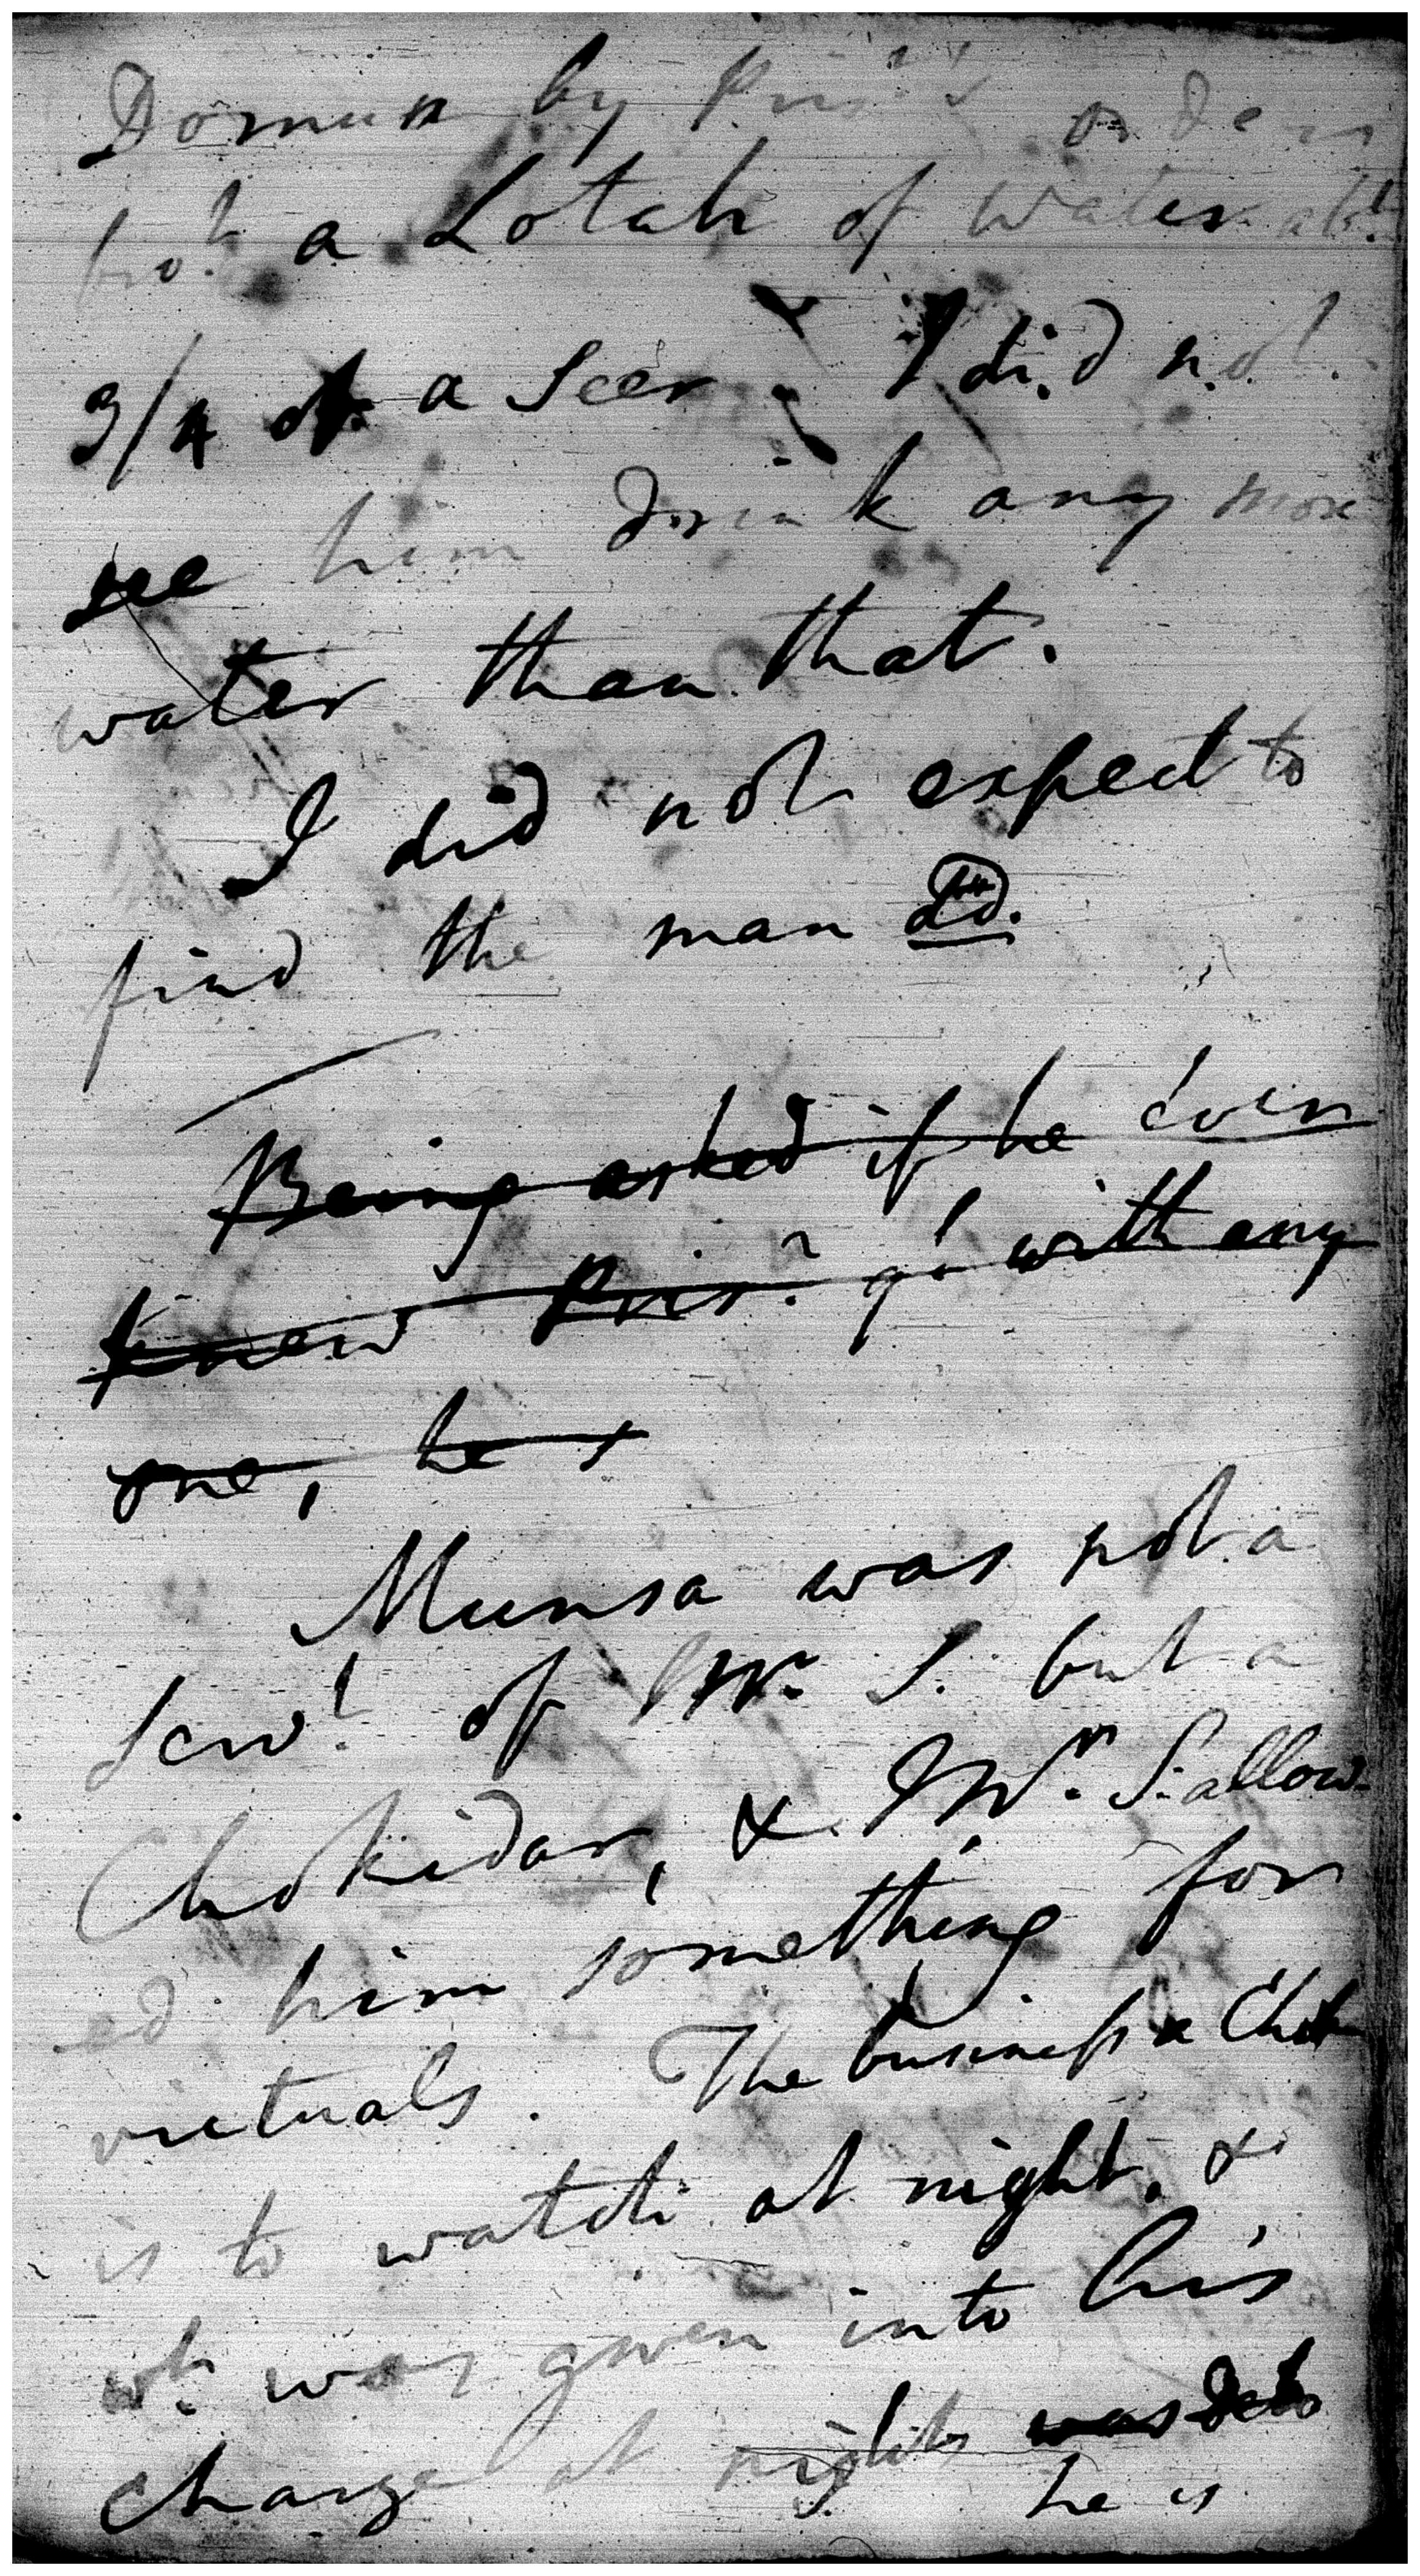 Domun by Pris.rs orders
bro.t a Lotah of water abt.
3/4 of a Seer. I did not
see him drink any more
water than that.
I did not expect to
find the man dd.
Being asked if he ever
knew Pris.r ql with any
one, he s
Munsa was not a
serv.t of Mr. S. but a
Chokidar, & Mr. S. allow-
ed him something for
victuals. The business a Chok
is to watch at night, &
wh. was given into his
charge at nights
he is